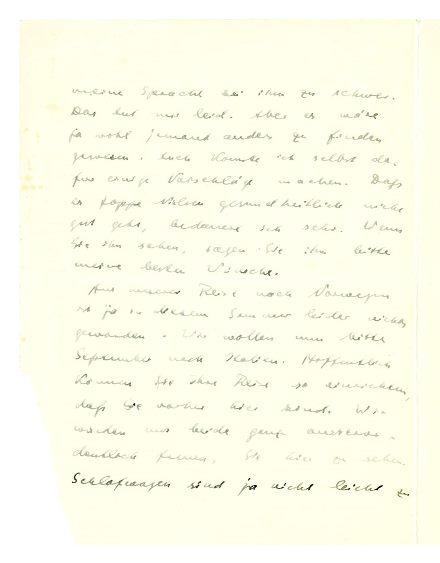 meine Sprache sei ihm zu schwer.
Das tut mir leid. Aber es wäre
ja wohl jemand anders zu finden
gewesen. Auch könnte ich selbst da-
für einige Vorschläge machen. Daß
es nicht
gut geht, bedauere ich sehr. Wenn
Sie ihn sehen, sagen Sie ihm bitte
meine besten Wünsche.
Aus unserer Reise nach Norwegen
ist ja in diesem Sommer leider nichts
geworden. Wir wollen nun Mitte
September nach Italien. Hoffentlich
können Sie Ihre Reise so einrichten,
daß Sie vorher hier sind. Wir
würden uns beide ganz ausseror-
dentlich freuen, Sie hier zu sehen.
Schlafwagen sind ja nicht leicht zu